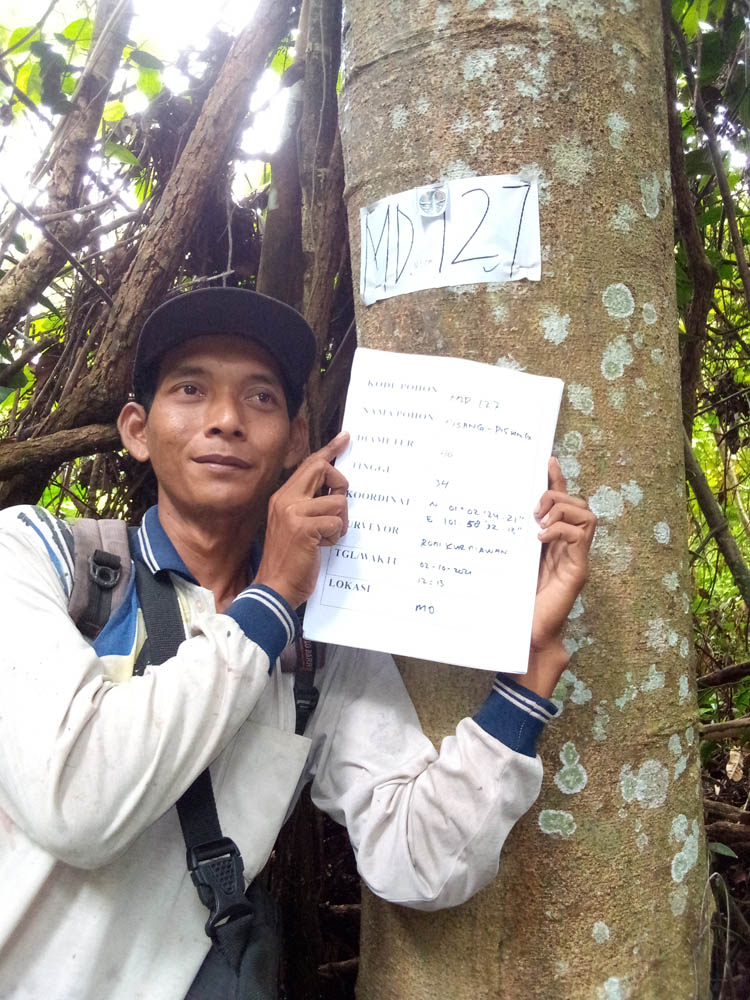 MD.127
KODE POHON MD 127
NAMA POHON PISANG-PISANG
DIAMETER
TINGGI 34
KOORDINAT N 01° 02' 24.21"
E 101. 50' 32
SURVEYOR RONI KURNIAWAN
TGL/WAKTU 02-10-2021
12:13
LOKASI MD